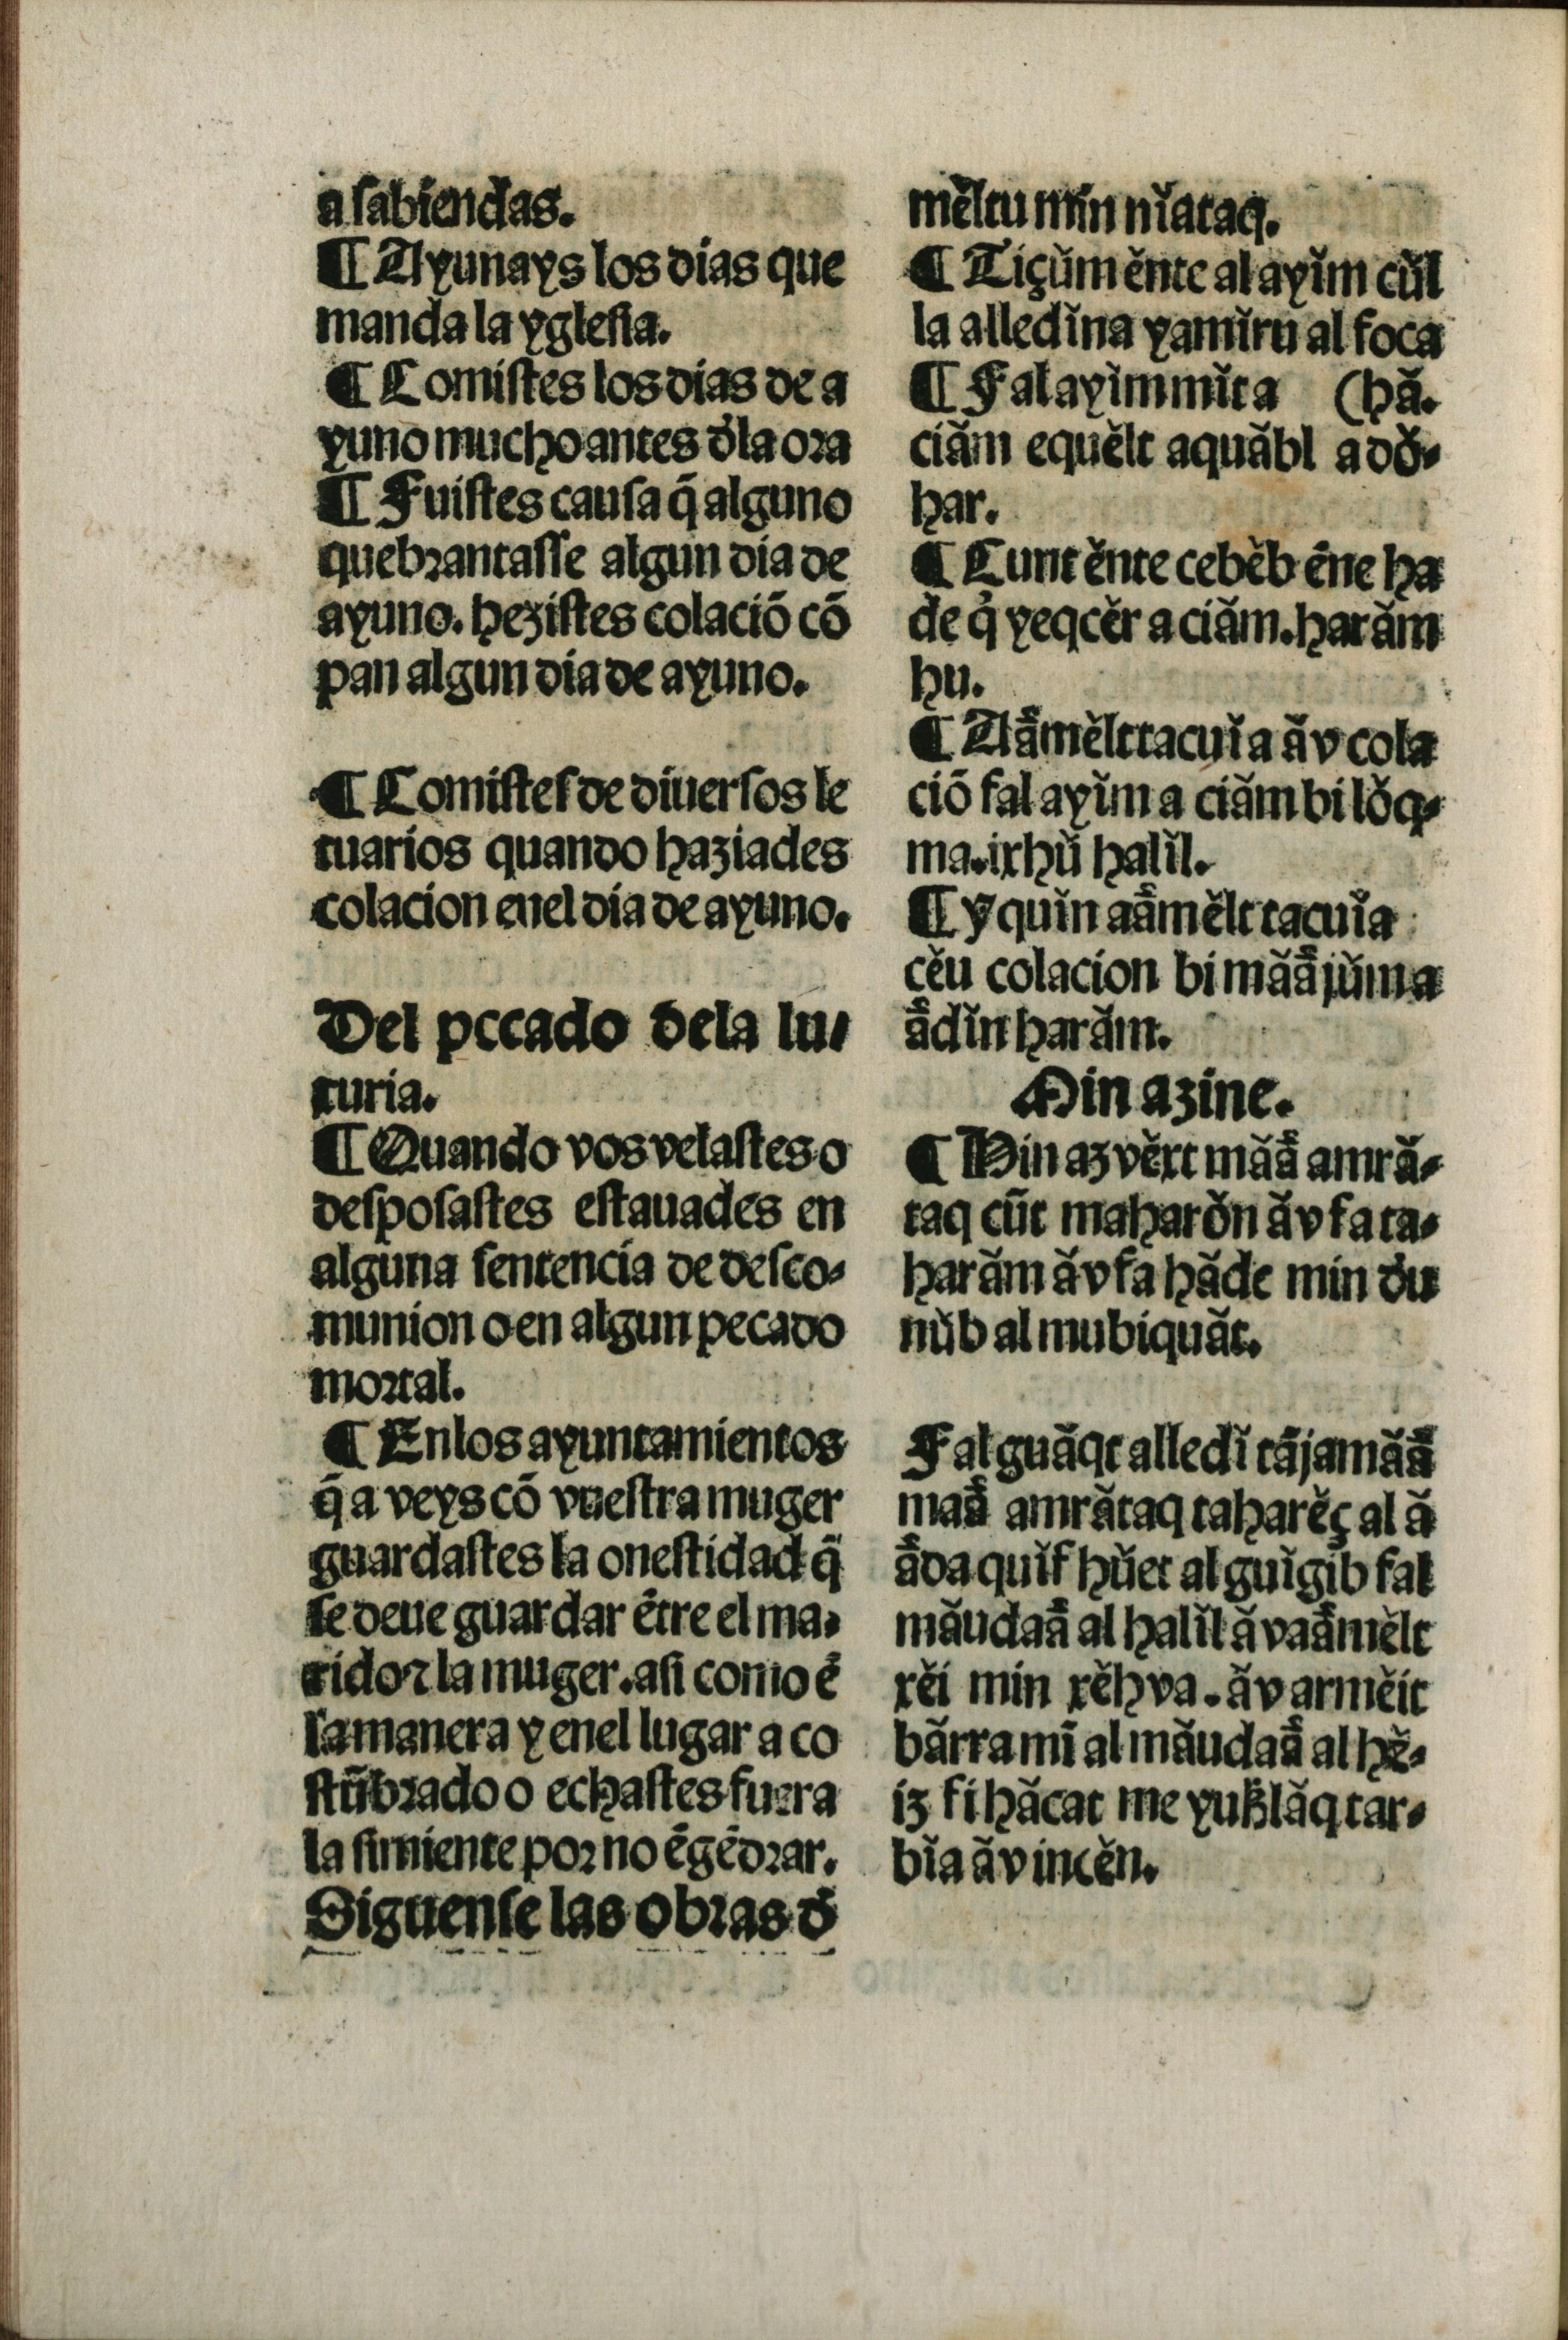 a sabiendas.
¶ Ayunays los dias que
manda la yglesia.
¶ Comistes los dias de a
yuno mucho antes d̄la ora
¶ Fuistes causa q̄ alguno
quebrantasse algun dia de
ayuno. hezistes colaciō cō
pan algun dia de ayuno.
¶ Comistes de diuersos le
tuarios quando haziades
colacion enel dia de ayuno.
Del peccado dela lu-
xuria.
¶ Quando vos velastes o
desposastes estauades en
alguna sentencia de desco-
munion o en algun pecado
mortal.
¶ Enlos ayuntamientos
q̄ a veys cō vuestra muger
guardastes la onestidad q̄
se deue guardar ētre el ma-
rido ⁊ la muger. asi como ē
la manera y enel lugar a co
stūbrado o echastes fuera
la simiente por no ēgēdrar.
Siguense las obras d̄
mĕltu min nĭataq.
¶ Tiçŭm ĕnte al ayĭm cŭl
la alledĭna yamĭru al foca
¶ Fal ayĭm mĭta (hă.
ciăm equĕlt aquăbl a dŏ-
har.
¶ Cunt ĕnte cebĕb ēne ha
de q̇ yeqcĕr a ciăm. harăm
hu.
¶ Aămĕlt tacuĭa ăv cola
ciō fal ayĭm a ciăm bi lŏq-
ma. ixhŭ halĭl.
¶ y quĭn aămĕlt tacuĭa
cĕu colacion bi măă jŭma
ădĭn harăm.
Min azine.
¶ Hin azvĕxt măă amră-
taq cūt maharŏn ăv fa ta-
harăm ăv fa hăde min du
nŭb al mubiquăt.
Fal guăqt alledĭ tăjamăă
maă amrătaq taharĕç al ă
ăda quĭf hŭet al guĭgĭb fal
măudaă al halĭl ăvaămĕlt
xĕi min xĕhva. ăv armĕit
bărra mī al măudaă al hĕ-
iz fi hăcat me yuhlăq tar-
bĭa ăv incĕn.